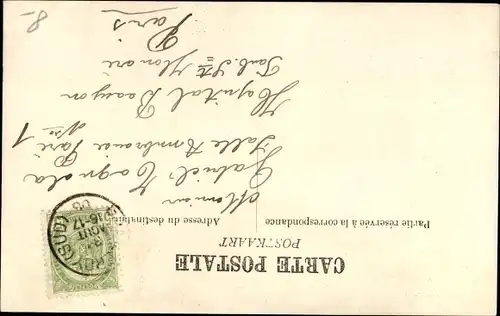 CARTE POSTALE
POSTKAART
Partie réservée à la correspondance
Adresse du destinataire
Monsieur
Gabriel
Salle Ambroise Paré
N° 1
Hopital Beaujon
Faub. St Honoré
Paris
8-
(SUD)
16-17
AOUT